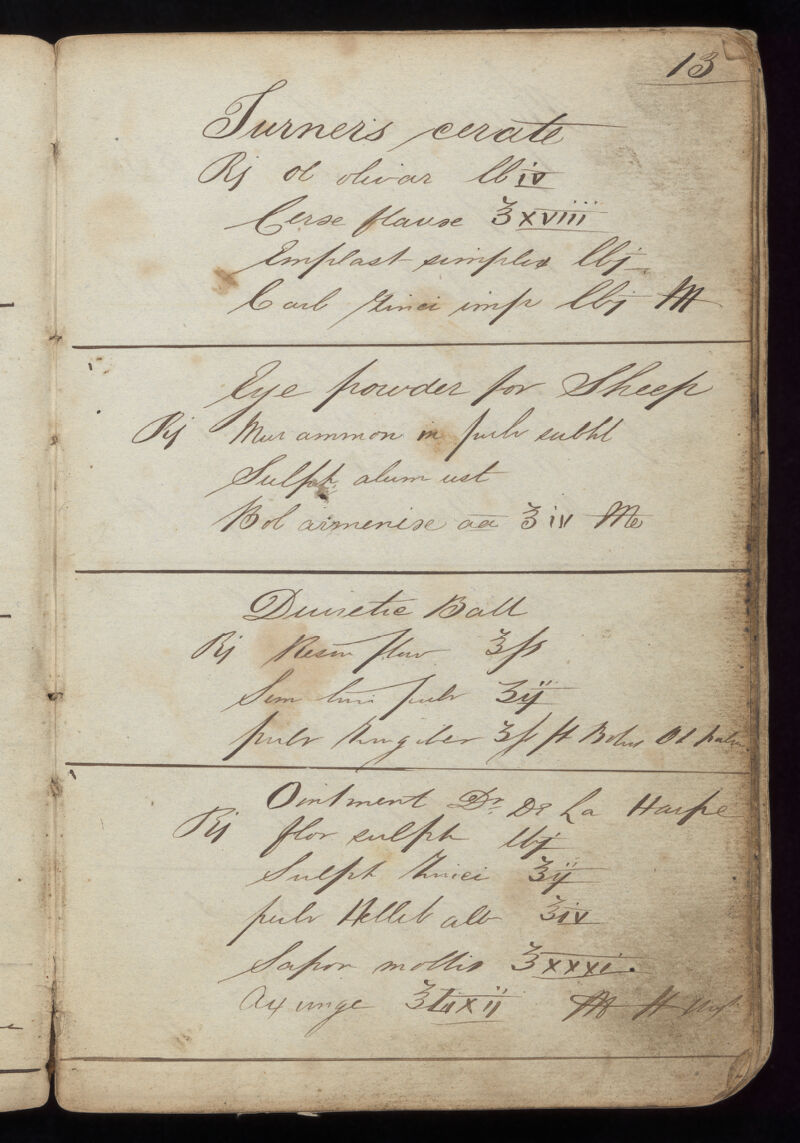 13
Turners cerate
Rj ol olivar lbiv
Cerae flavae ℥xviii
Emplast simplex lbj
Carb Zinci imp lbj M
Eye powder for Sheep
Rj Mur ammon in pulv subtil
Sulph alum ust
Bol armeniae aa ℥iv M
Diuretic Ball
Rj Resin flav ℥ſs
Sem lini pulv ℥ij
pulv Zingiber ℥ſs ft Bolus Ol
Ointment Dr. De La Harpe
Rj flor sulph lbj
Sulph Zinci ℥ij
pulv Helleb alb ℥iv
Sapon mollis ℥xxxi.
Axunge M ft ung